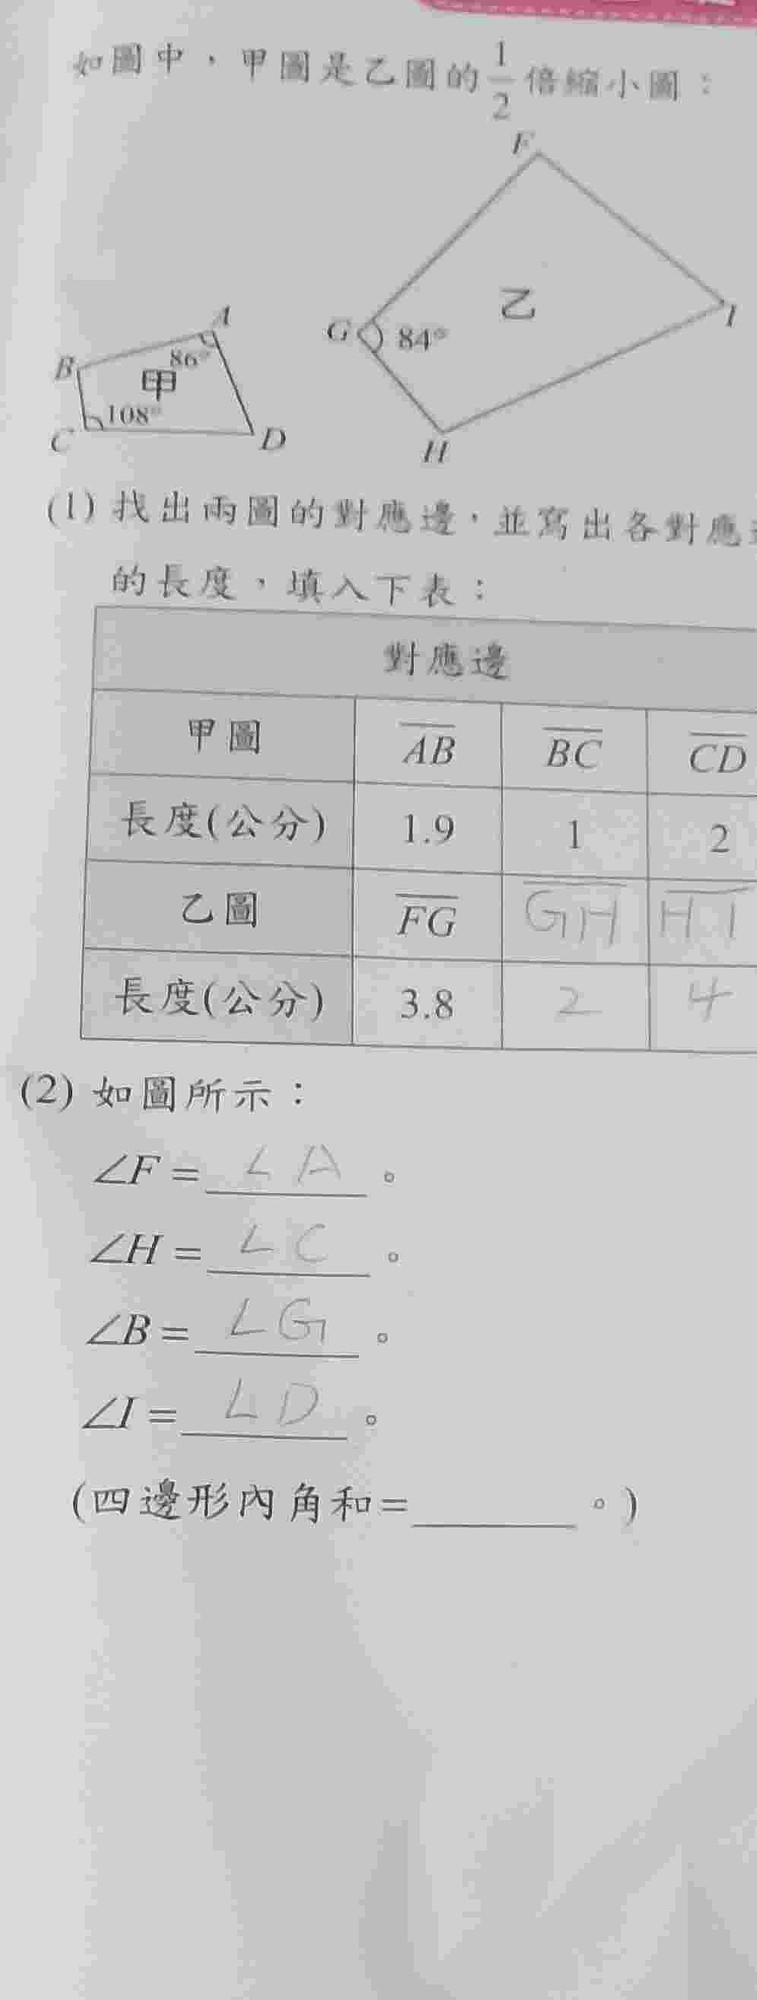 如圖中，甲圖是乙圖的1/2倍縮小圖：
F
乙
I
G 84°
H
A
B 86°
甲
108°
C D
(1) 找出兩圖的對應邊，並寫出各對應
的長度，填入下表：
對應邊
甲圖 AB BC CD
長度(公分) 1.9 1 2
乙圖 FG GH HI
長度(公分) 3.8 2 4
(2) 如圖所示：
∠F=∠A。
∠H=∠C。
∠B=∠G。
∠I=∠D。
(四邊形內角和=______。)